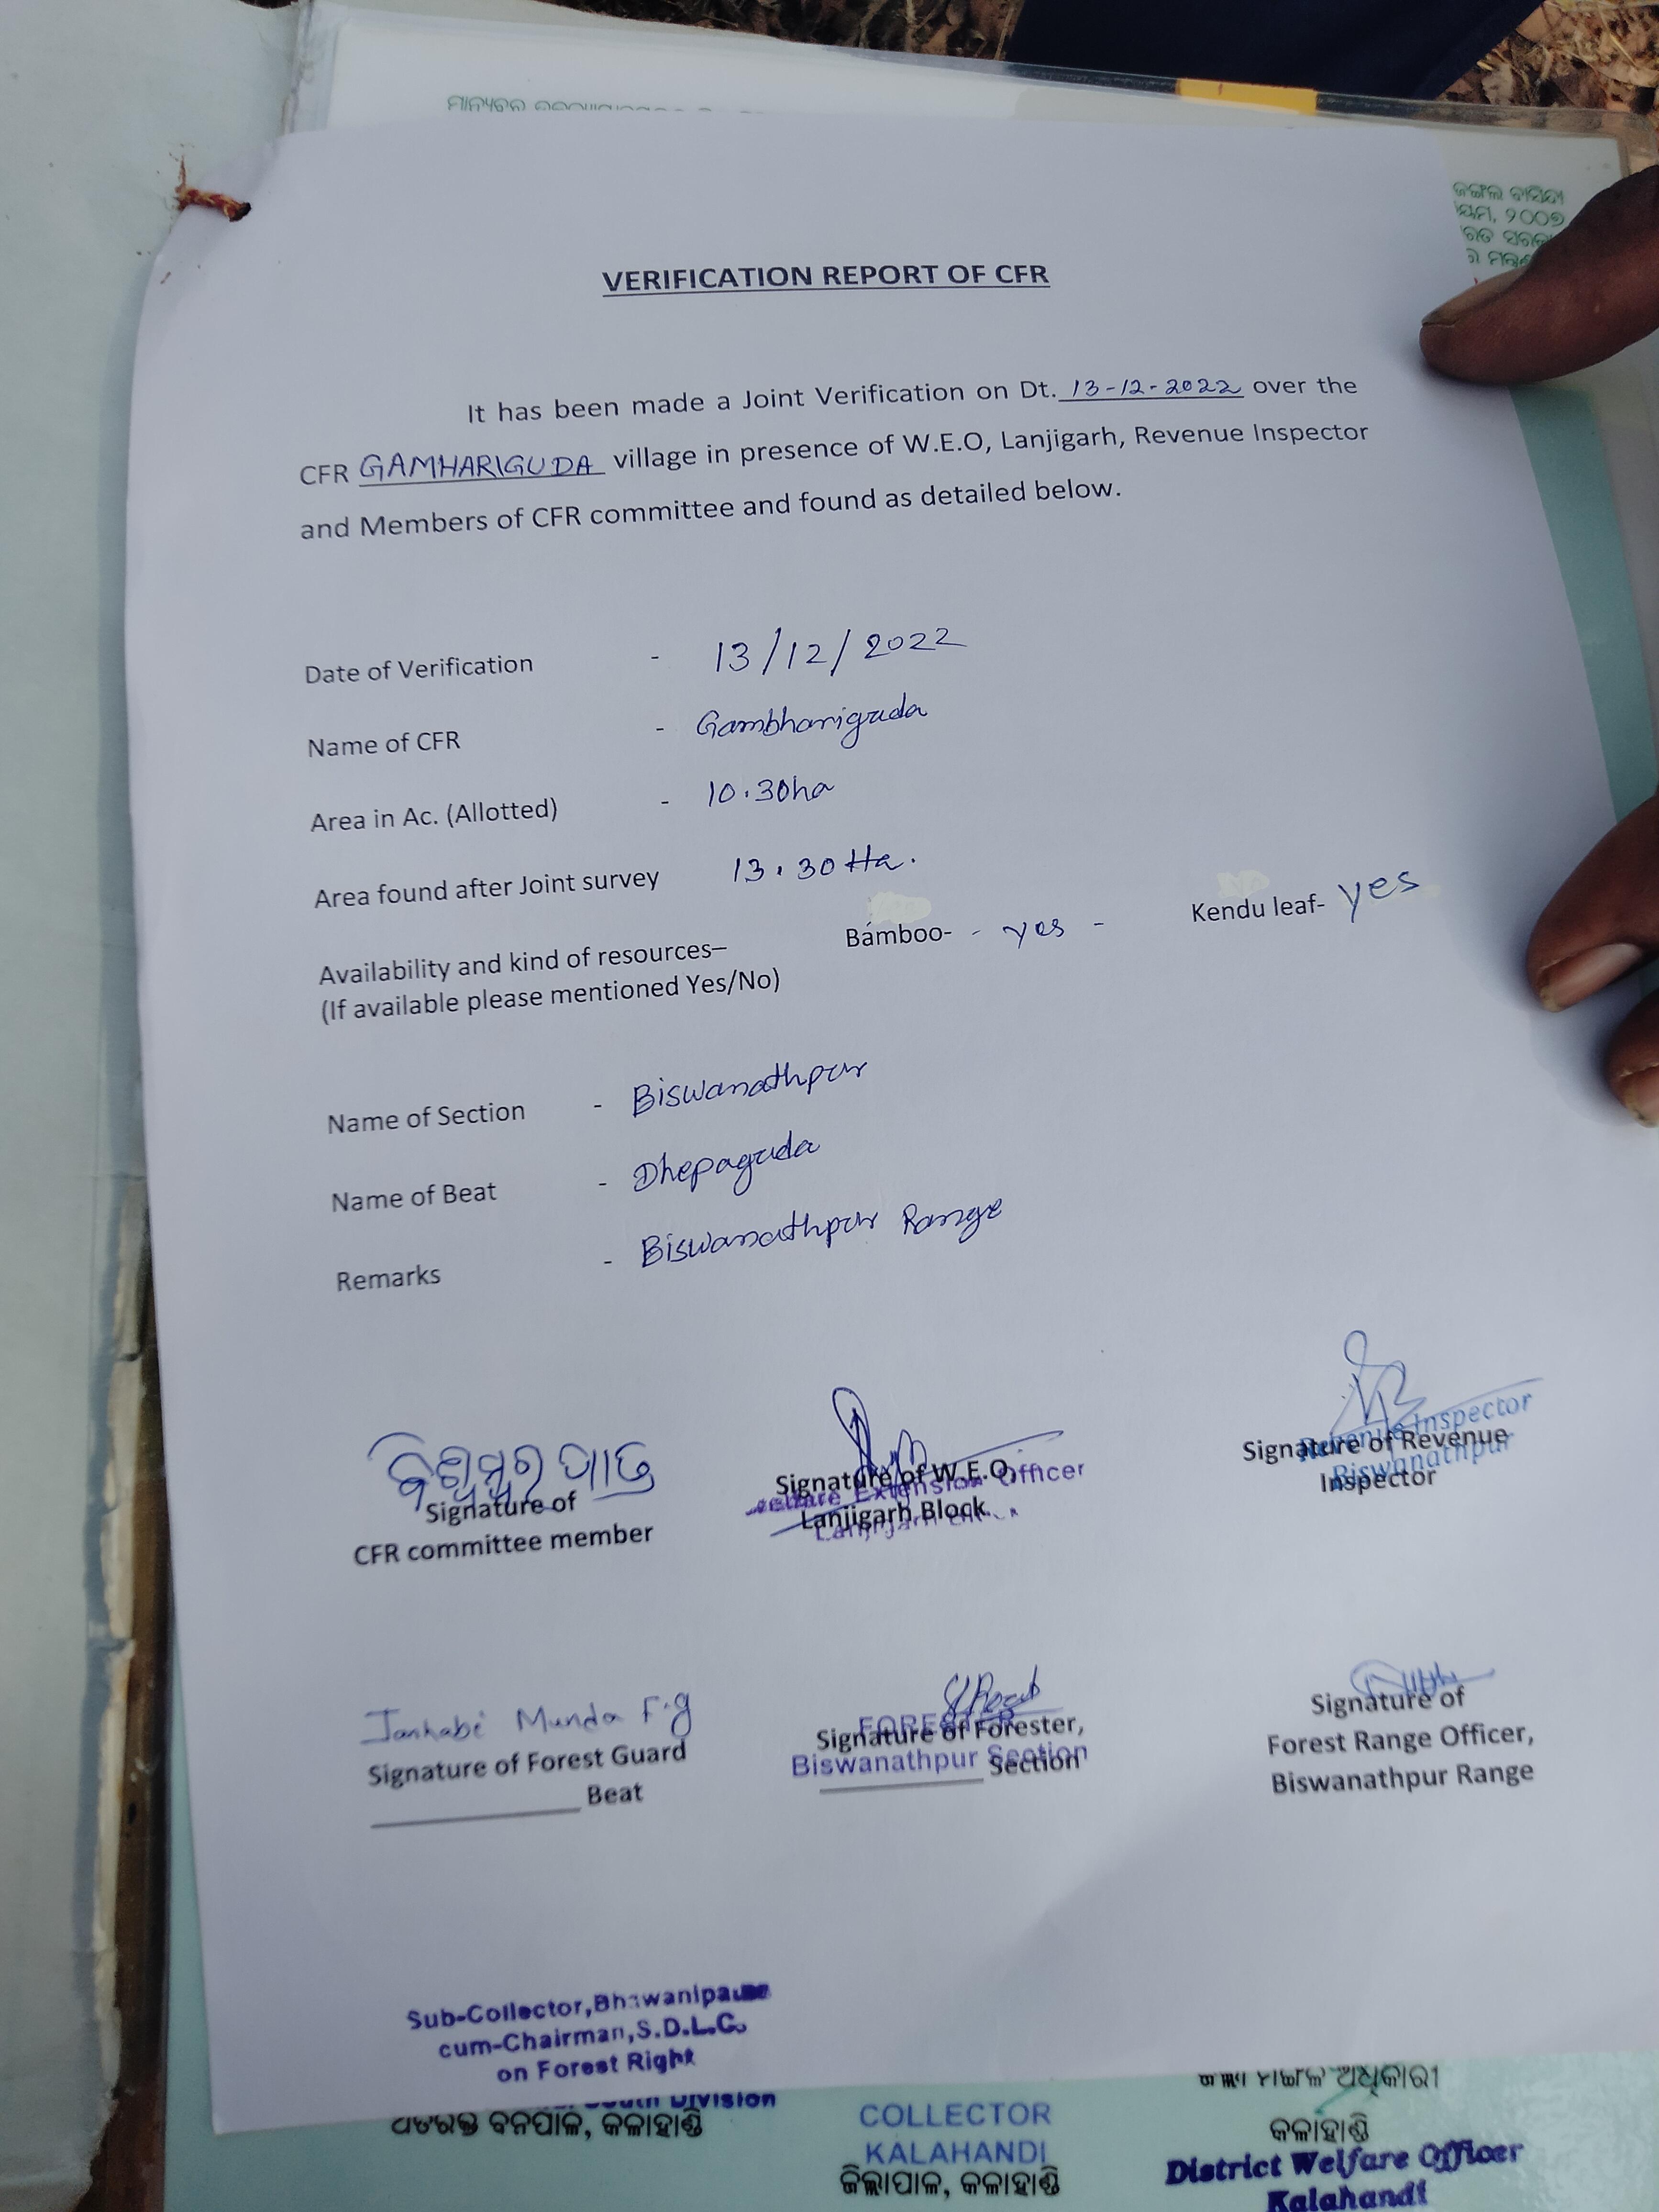 ଜଙ୍ଗଲ ବାସିନ୍ଦା
୨୦୦୭
VERIFICATION REPORT OF CFR
It has been made a Joint Verification on Dt. 13-12-2022 over the
CFR GAMHARIGUDA village in presence of W.E.O, Lanjigarh, Revenue Inspector
and Members of CFR committee and found as detailed below.
Date of Verification - 13/12/2022
Name of CFR - Gambhariguda
Area in Ac. (Allotted) - 10.30ha
Area found after Joint survey 13.30 Ha.
Availability and kind of resources– Bamboo- - yes - Kendu leaf- yes
(If available please mentioned Yes/No)
Name of Section - Biswanathpur
Name of Beat - Dhepaguda
Remarks - Biswanathpur Range
Signature of
CFR committee member
Signature of W.E.O,
Welfare Extension Officer
Lanjigarh Block.
Signature of Revenue
Inspector
Revenue Inspector
Biswanathpur
Janhabi Munda F.g
Signature of Forest Guard
Beat
FORESTER
Signature of Forester,
Biswanathpur Section
Section
Signature of
Forest Range Officer,
Biswanathpur Range
Sub-Collector, Bhawanipatna
cum-Chairman, S.D.L.C.
on Forest Right
South Division
ବନପାଳ, କଳାହାଣ୍ଡି
COLLECTOR
KALAHANDI
ଜିଲ୍ଲାପାଳ, କଳାହାଣ୍ଡି
ଅଧିକାରୀ
କଳାହାଣ୍ଡି
District Welfare Officer
Kalahandi